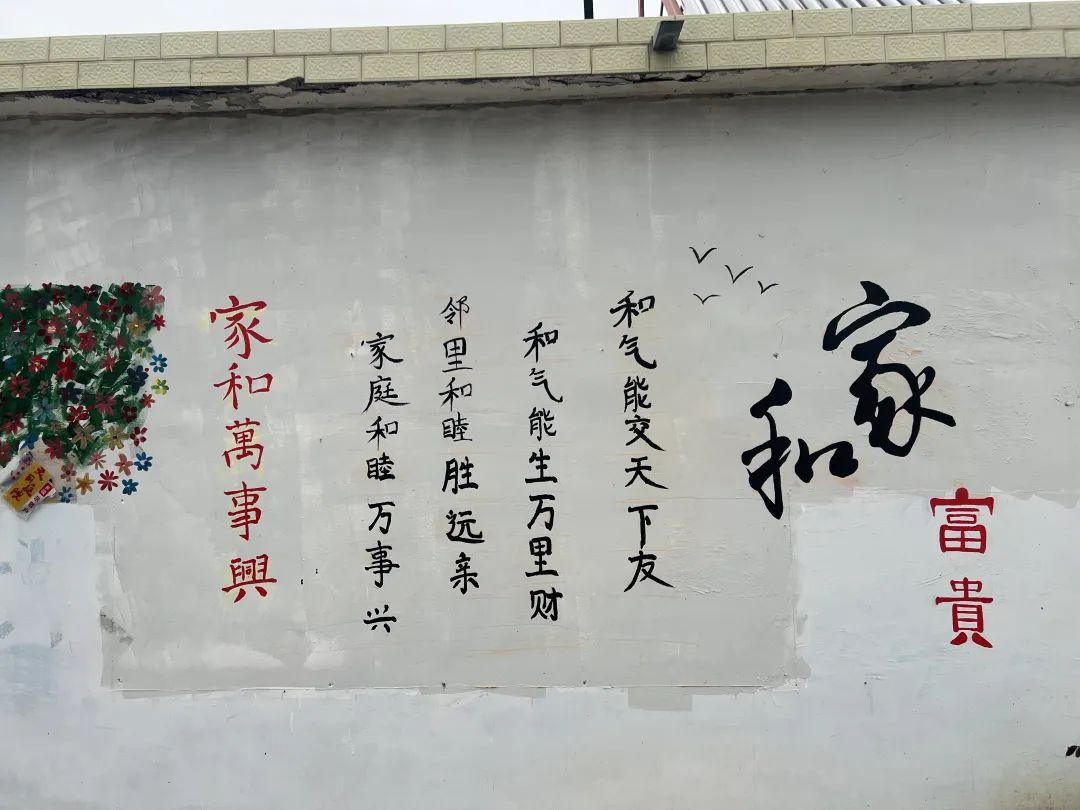 家和
富貴
和气能交天下友
和气能生万里财
邻里和睦胜远亲
家庭和睦万事兴
家和萬事興